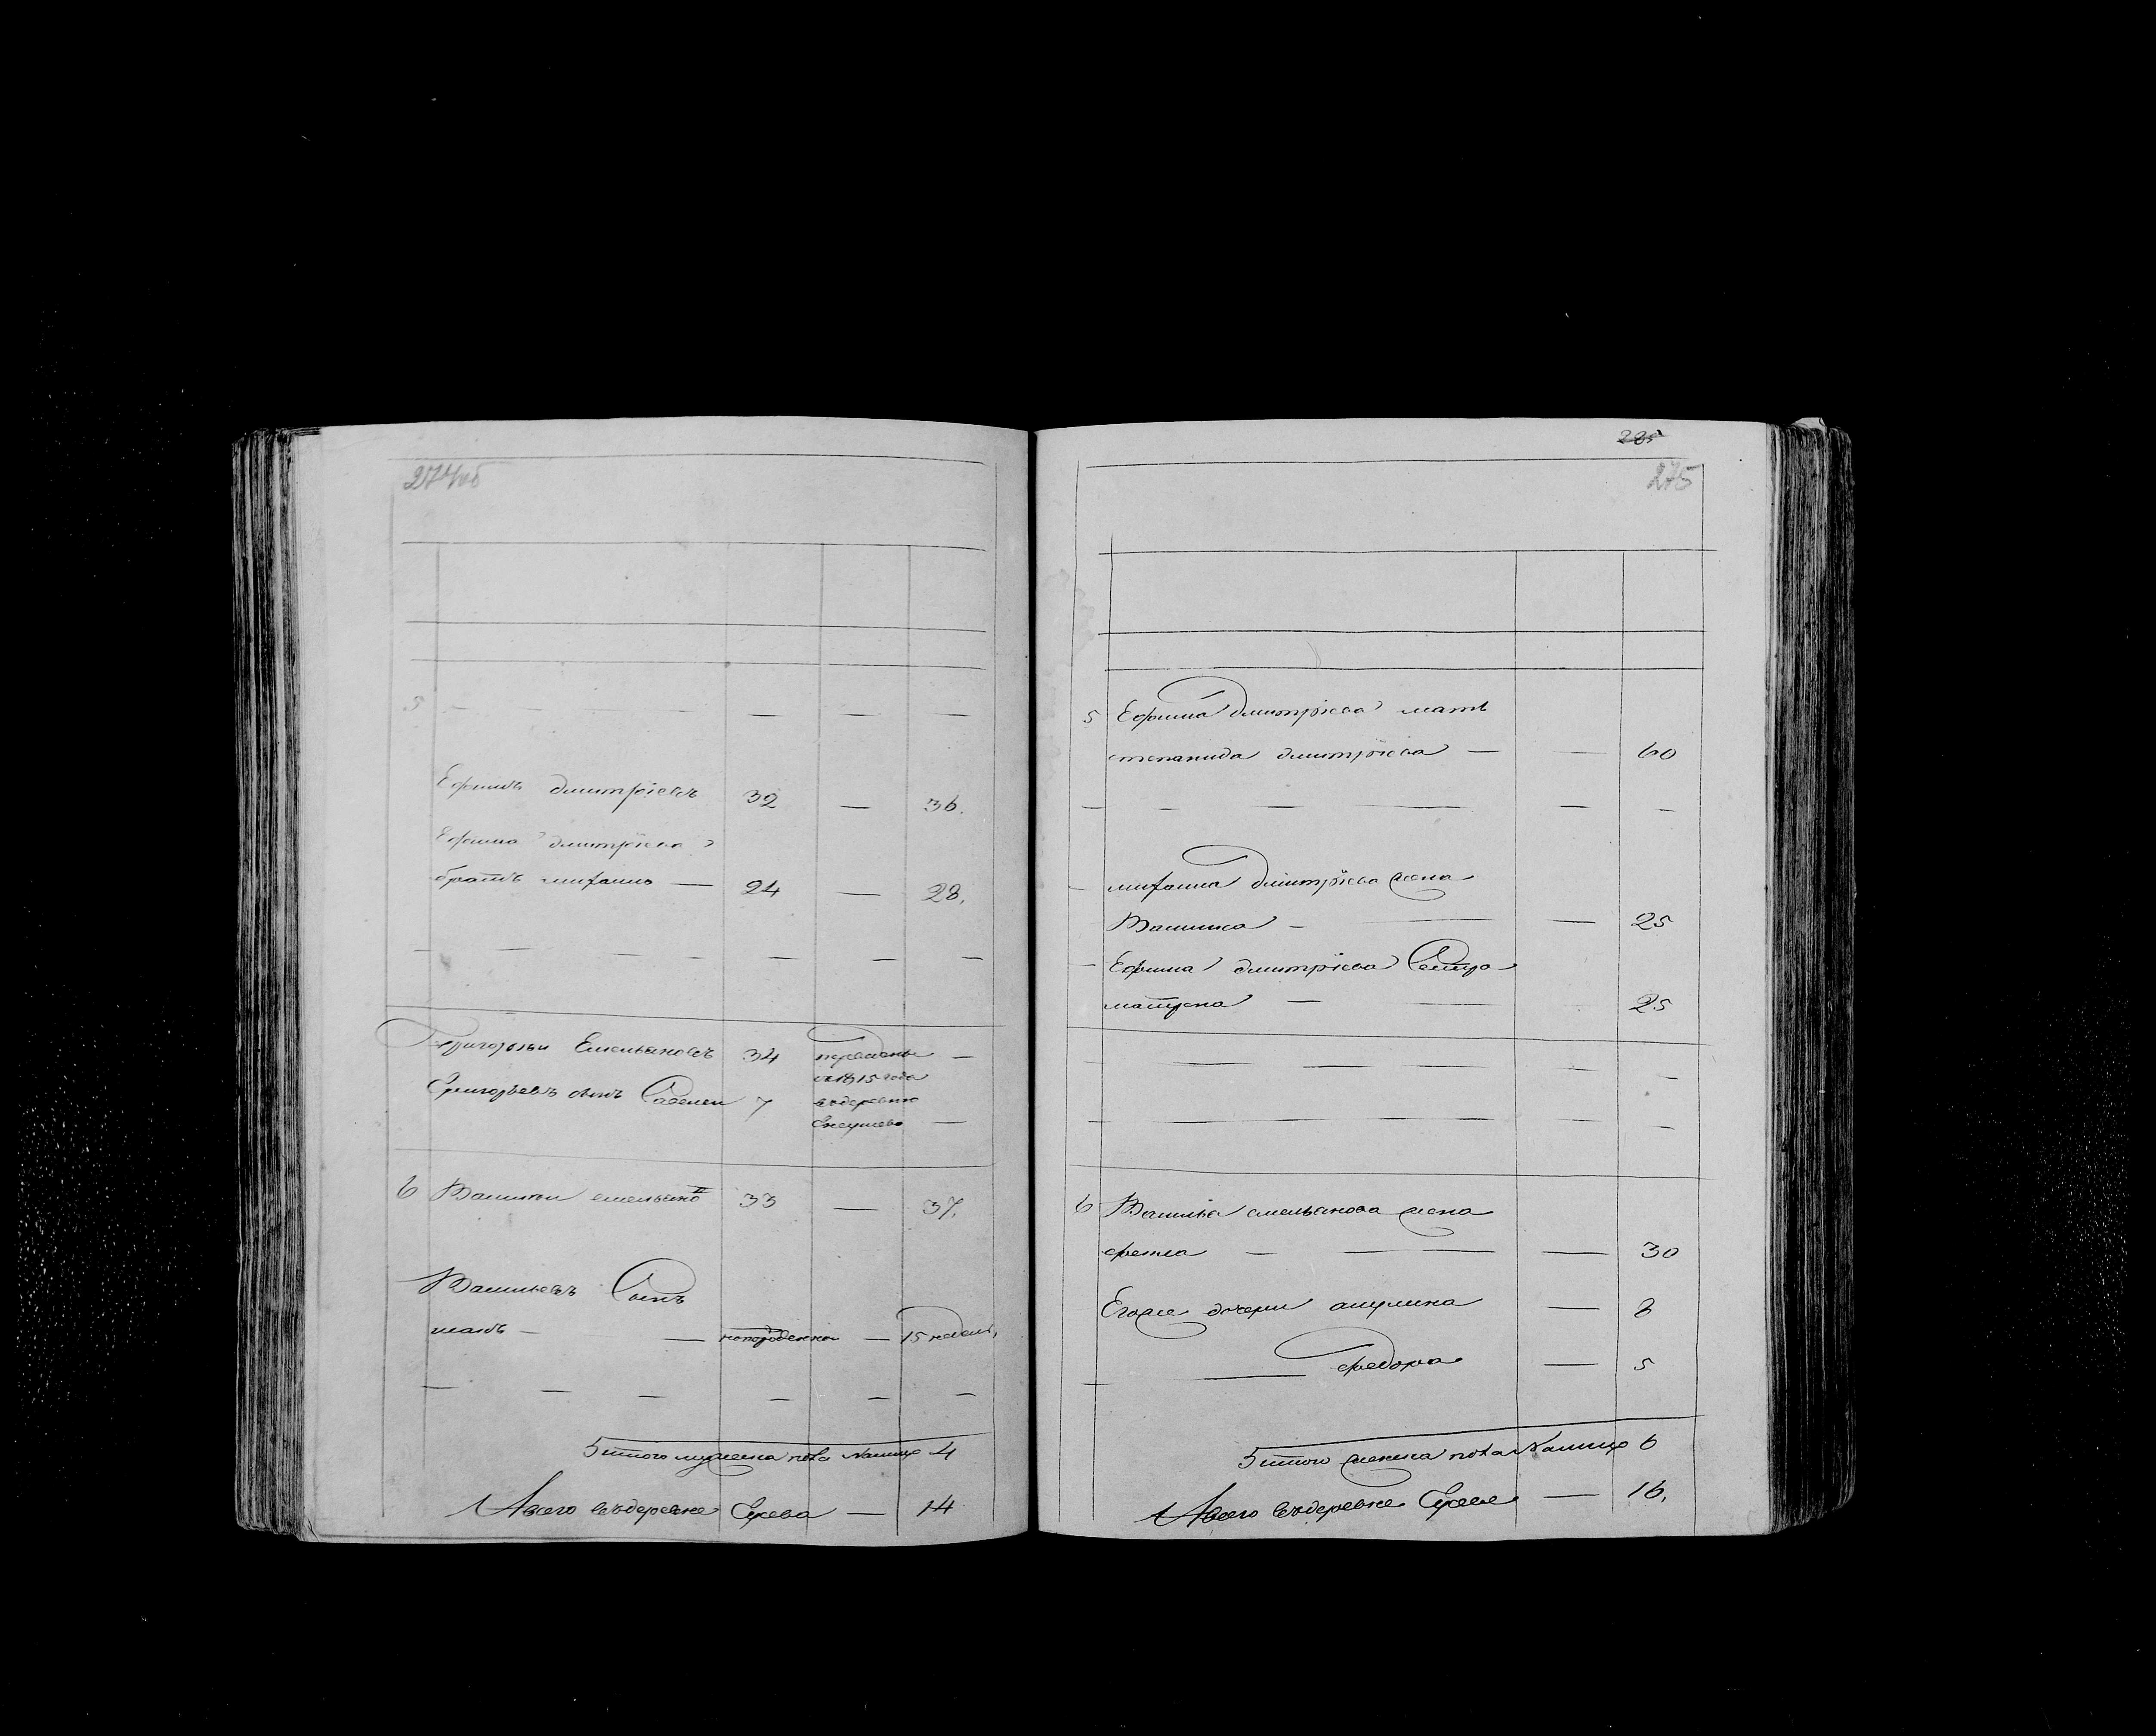 274об
5
Ефимъ дмитрiевъ 32 — 36.
Ефима дмитрiева
братъ михаило — 24 — 28.
Григорьи Емельяновъ 34 —
1815 года
Григорьевъ сынъ Савелей 7
въдеревню
6 Василеи емельяно 33 — 37.
Васильевъ Сынъ
— — новорожденной — 15 недель,
итого мужеска пола налицо 4
Авсего въдеревне — 14
225
275
5 Ефима дмитрiева мать
степанида дмитрiева — — 60
михаила дмитрiева жена
Василиса — — — 25
Ефима дмитрiева Сестра
матрена — — 25
6 Василья емельянова жена
фекла — — — 30
Егоже дочери акулина — 8
федора — 5
итого женска пола налицо 6
Авсего въдеревне — 16.